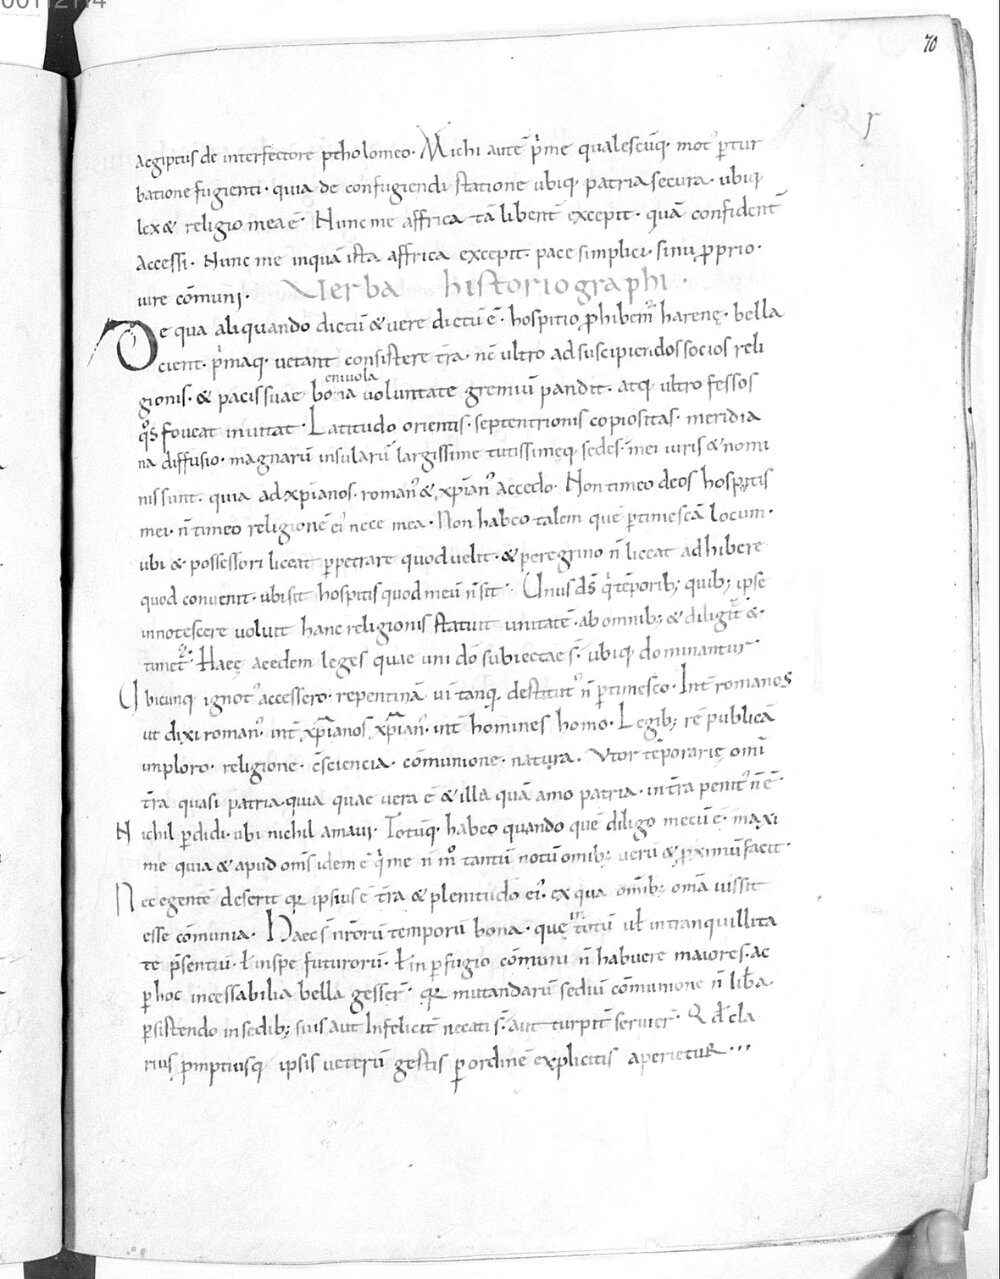 00112114
70
aegiptus de interfectore ptholomeo· Michi autē p̄me qualescūq; mot᾽ ꝑtur
batione fugienti· quia de confugiendi statione ubiq; patria secura· ubiq;
lex & religio mea ē· Nunc me affrica tā libent̄ excepit· quā confident̄
accessi· Nunc me inquā ista affrica excepit· pace simplici· sinu ꝓprio·
iure cōmuni·
Verba historiographi·
De qua aliquando dictū & vere dictū ē· hospitio ꝓhibem᷑ harenę· bella
cient· p̄maq; vetant consistere tr̄a· nē ultro ad suscipiendos socios reli
gionis· & pacis suae bona voluntate gremiū pandit· atq; ultro fessos
enivola
q̊s foveat invitat· Latitudo orientis· septentrionis copiositas· meridia
na diffusio· magnarū insularū largissime tutissimęq; sedes· mei iuris & nomi
nis sunt· quia ad xp̄ianos· roman᾽ & xp̄ian᾽ accedo· Non timeo deos hospitis
mei· n̄ timeo religionē ei᾽ nece mea· Non habeo talem quē ꝑtimescā locum·
ubi & possessori liceat ꝑpetrare quod velit· & peregrino n̄ liceat adhibere
quod convenit· ubi sit hospitis quod meū n̄ sit· Unus ds̄ q̄ tēporib; quib; ipse
innotescere voluit hanc religionis statuit unitatē· ab omnib; & diligit᷑ &
timet᷑· Haeę aeedem leges quae uni dō subiectae s̄· ubiq; dominantur·
Ubicunq; ignot᾽ accessero· repentinā vī tanq̄ destitut᾽ n̄ ꝑtimesco· Int̄ romanos
ut dixi roman᾽· int̄ xp̄ianos xp̄ian᾽· int̄ homines homo· Legib; rē publicā
imploro· religione· c̄sciencia· cōmunione· natura· Utor tēporarię om̄i
tr̄a quasi patria· quia quae vera ē & illa quā amo patria· in tr̄a penit᾽ n̄ ē·
Nichil ꝑdidi· ubi nichil amavi· Totūq; habeo quando quē diligo mecū ē· maxi
me quia & apud om̄s idem ē q̄ me n̄ m̊ tantū notū om̄ib; verū & ꝓximū facit·
Nec egentē deserit qꝛ ipsius ē tr̄a & plenitudo ei᾽· ex qua om̄ib; om̄a iussit
esse cōmunia· Haec s̄ nr̄orū temporū bona· quę in totū vt̄ in tranquillita
te p̄sentiū· ł in spe futurorū· ł in ꝑfugio cōmuni n̄ habuere maiores· ac
ꝑ hoc incessabilia bella gesser̄· qꝛ mutandarū sediū cōmunione n̄ lib̄a·
ꝑsistendo in sedib; suis aut Infelicit̄ necati s̄· aut turpit̄ servier̄· Qd̄ cla
rius ꝓmptiusq; ipsis veterū gestis ꝑ ordinē explicitis aperietur···